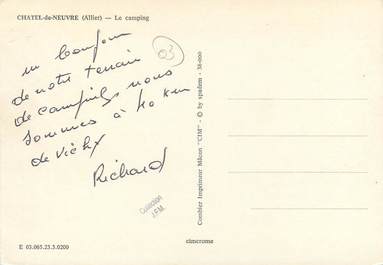 CHATEL-de-NEUVRE (Allier) — Le camping
un bonjour
de notre terrain
de camping nous
sommes à 40 km
de Vichy
Richard
03
Collection
J.F.M.
Combier Imprimeur Mâcon "CIM" - © by spadem - 38-000
E 03.065.23.3.0209
cimcrome